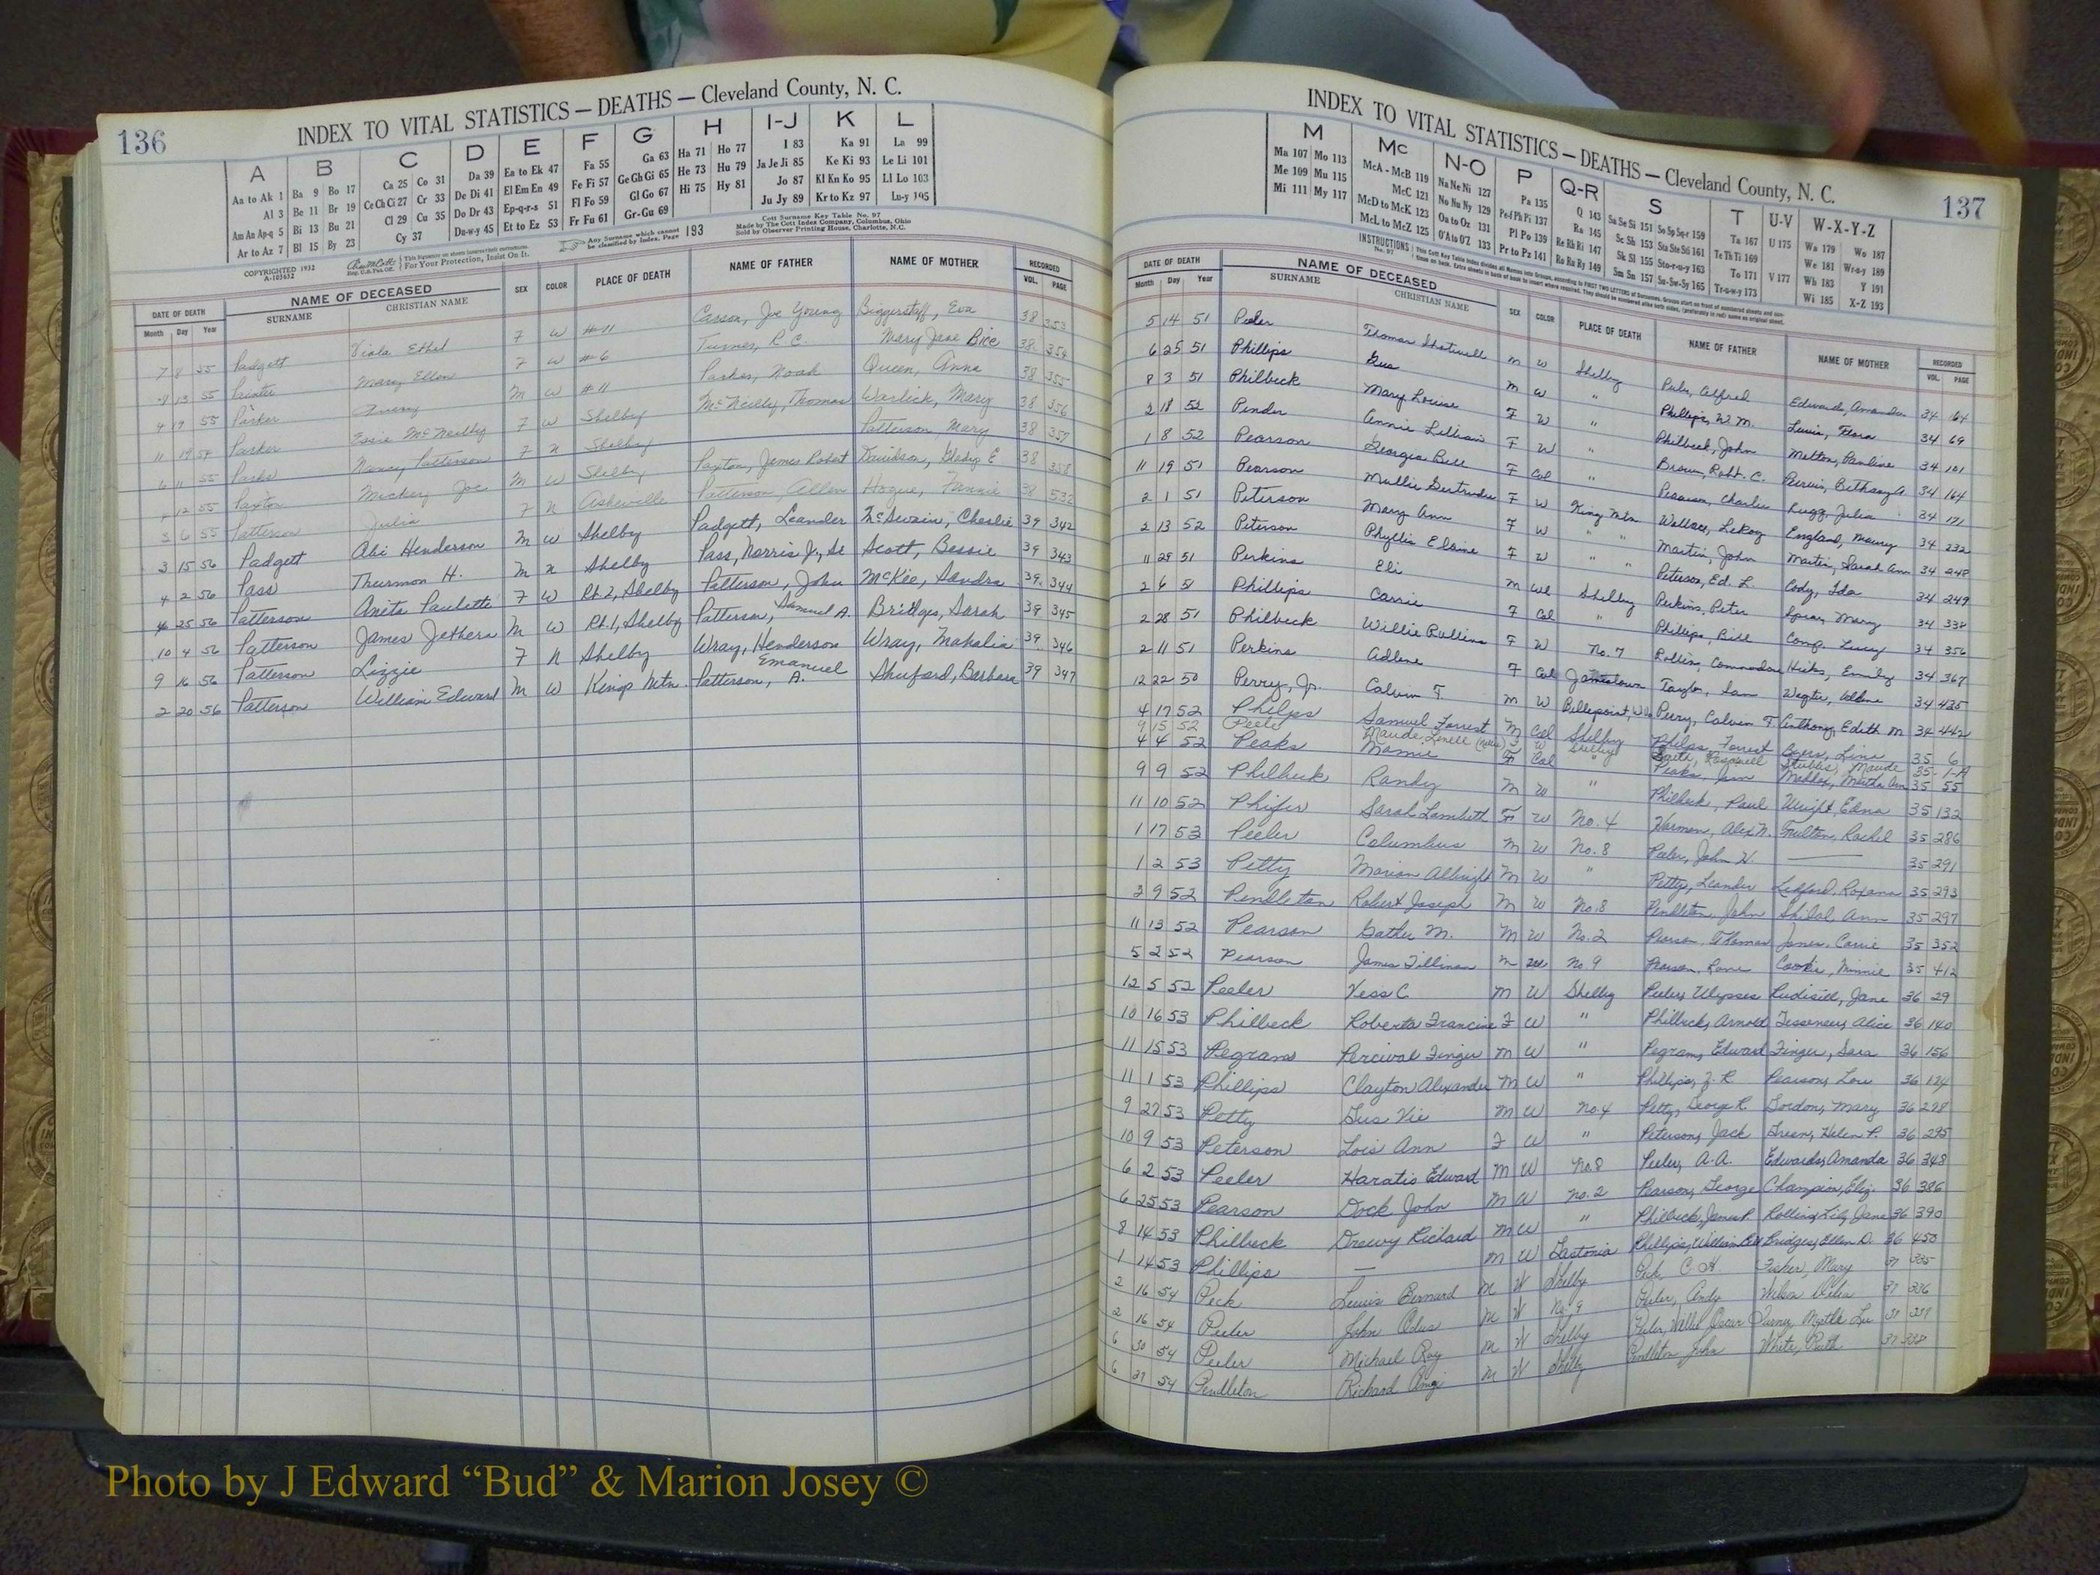 136
INDEX TO VITAL STATISTICS — DEATHS — Cleveland County, N. C.
A B C D E F G H I-J K L
Aa to Ak 1 Ba 9 Bo 17 Ca 25 Co 31 Da 39 Ea to Ek 47 Fa 55 Ga 63 Ha 71 Ho 77 I 83 Ka 91 La 99
Al 3 Be 11 Br 19 Ce Ch Ci 27 Cr 33 De Di 41 El Em En 49 Fe Fi 57 Ge Gh Gi 65 He 73 Hu 79 Ja Je Ji 85 Ke Ki 93 Le Li 101
Am An Ap-q 5 Bi 13 Bu 21 Cl 29 Cu 35 Do Dr 43 Ep-q-r-s 51 Fl Fo 59 Gl Go 67 Hi 75 Hy 81 Jo 87 Kl Kn Ko 95 Ll Lo 103
Ar to Az 7 Bl 15 By 23 Cy 37 Du-w-y 45 Et to Ez 53 Fr Fu 61 Gr-Gu 69 Ju Jy 89 Kr to Kz 97 Lu-y 105
COPYRIGHTED 1932
A-103632
For Your Protection, Insist On It.
Any Surname which cannot be classified by Index, Page 193
Cott Surname Key Table No. 97
Made by The Cott Index Company, Columbus, Ohio
Sold by Observer Printing House, Charlotte, N.C.
DATE OF DEATH NAME OF DECEASED SEX COLOR PLACE OF DEATH NAME OF FATHER NAME OF MOTHER RECORDED
Month Day Year SURNAME CHRISTIAN NAME VOL. PAGE
7 8 55 Padgett Viola Ethel F W #11 Casson, Joe Young Biggerstaff, Eva 38 353
8 13 55 Painter Mary Ellen F W #6 Turner, R C Mary Jane Bice 38 354
4 19 55 Parker Avery M W #11 Parker, Noah Queen, Anna 38 355
11 19 54 Parker Essie McNeilly F W Shelby McNeilly, Thomas Warlick, Mary 38 356
6 11 55 Parks Nancy Patterson F N Shelby Patterson Mary 38 357
12 55 Paxton Mickey Joe M W Shelby Paxton, James Robert Davidson, Gladys E 38 358
3 6 55 Patterson Julia F N Asheville Patterson, Allen Hogue, Fannie 38 532
3 15 56 Padgett Abi Henderson M W Shelby Padgett, Leander McSwain, Cheslie 39 342
4 2 56 Pass Thurmon H. M N Shelby Pass, Norris J., Sr Scott, Bessie 39 343
4 25 56 Patterson Anita Paulette F W Rt. 2, Shelby Patterson, John McKee, Sandra 39 344
10 4 56 Patterson James Jethera M W Rt. 1, Shelby Patterson, Samuel A. Bridges, Sarah 39 345
9 16 56 Patterson Lizzie F N Shelby Wray, Henderson Wray, Mahalia 39 346
2 20 56 Patterson William Edward M W Kings Mtn. Patterson, Emanuel A. Shuford, Barbara 39 347
137
INDEX TO VITAL STATISTICS — DEATHS — Cleveland County, N. C.
M Mc N-O P Q-R S T U-V W-X-Y-Z
Ma 107 Mo 113 McA - McB 119 Na Ne Ni 127 Pa 135 Q 143 Sa Se Si 151 So Sp Sq-r 159 Ta 167 U 175 Wa 179 Wo 187
Me 109 Mu 115 McC 121 No Nu Ny 129 Pe-f Ph Pi 137 Ra 145 Sc Sh 153 Sta Ste Sti 161 Te Th Ti 169 We 181 Wr-u-y 189
Mi 111 My 117 McD to McK 123 Oa to Oz 131 Pl Po 139 Re Rh Ri 147 Sk Sl 155 Sto-r-u-y 163 To 171 V 177 Wh 183 Y 191
McL to McZ 125 O'A to O'Z 133 Pr to Pz 141 Ro Ru Ry 149 Sm Sn 157 Su-Sw-Sy 165 Tr-u-w-y 173 Wi 185 X-Z 193
DATE OF DEATH NAME OF DECEASED SEX COLOR PLACE OF DEATH NAME OF FATHER NAME OF MOTHER RECORDED
Month Day Year SURNAME CHRISTIAN NAME VOL. PAGE
5 14 51 Peeler Thomas Shotwell M W Shelby Peeler, Alfred Edwards, Amanda 34 164
6 25 51 Phillips Gus M W " Phillips, W. M. Lewis, Flora 34 69
8 3 51 Philbeck Mary Louise F W " Philbeck, John Melton, Pauline 34 101
2 18 52 Pender Annie Lillian F W " Brown, Robt. C. Bethany A. 34 164
1 8 52 Pearson Georgia Bell F Col " Pearson, Charlie Julia 34 171
11 19 51 Pearson Mullie Gertrude F W Kings Mtn Wallace, LeRoy England, Maury 34 232
2 1 51 Peterson Mary Ann F W " " Martin, John Martin, Sarah Ann 34 248
2 13 52 Peterson Phyllis Elaine F W " " Peterson, Ed. L. Cody, Ida 34 249
11 29 51 Perkins Eli M Col Shelby Perkins, Peter Mary 34 338
2 6 51 Phillips Carrie F Col " Phillips, Bill Camp, Lucy 34 356
2 28 51 Philbeck Willie Rollins F W No. 7 Rollins, Commodore Hicks, Emily 34 367
2 11 51 Perkins Adlene F Col Jamestown Taylor, Sam 34 435
12 22 50 Perry, Jr. Calvin T M W Perry, Calvin T. Anthony, Edith M 34 442
4 17 52 Phelps Samuel Forrest M Col Shelby Phelps, Forrest 35 6
9 15 52 Peele Maude Lenell F W Shelby Stubbs, Maude 35 1-A
4 4 52 Peaks Mamie F Col " Peaks, Sam Martha Ann 35 55
9 9 52 Philbeck Randy M W " Philbeck, Paul Wright, Edna 35 132
11 10 52 Phifer Sarah Lambeth F W No. 4 Harmon, Alex N. Fulton, Rachel 35 286
1 17 53 Peeler Columbus M W No. 8 Peeler, John H. — 35 291
1 2 53 Petty Marion Albright M W " Petty, Leander Ledford, Roxana 35 293
3 9 52 Pendleton Robert Joseph M W No. 8 Pendleton, John Shidal, Ann 35 297
11 13 52 Pearson Gather M. M W No. 2 Pearson, Thomas Jones, Carrie 35 352
5 2 52 Pearson James Tillman M W No 9 Pearson, Rome Cooke, Minnie 35 412
12 5 52 Peeler Vess C M W Shelby Peeler, Ulysses Rudisill, Jane 36 29
10 16 53 Philbeck Roberta Francine F W " Philbeck, Arnold Alice 36 140
11 15 53 Pegram Percival Finger M W " Pegram, Edward Finger, Sara 36 156
11 1 53 Phillips Clayton Alexander M W " Phillips, Z. R Pearson, Lou 36 174
9 27 53 Petty Gus Vie M W No. 4 Petty, George R. Gordon, Mary 36 278
10 9 53 Peterson Lois Ann F W " Peterson, Jack Green, Helen P. 36 295
6 2 53 Peeler Haratis Edward M W No. 8 Peeler, A. A. Edwards, Amanda 36 348
6 25 53 Pearson Dock John M W No. 2 Pearson, George Champion, Eliz. 36 386
8 14 53 Philbeck Drewy Richard M W " Philbeck, James P. Rollins, Lily Jane 36 390
1 14 53 Phillips — M W Gastonia Phillips, William Bridges, Ellen D. 36 450
2 16 54 Peck Lewis Bernard M W Shelby Peck, C. H. Fisher, Mary 37 335
2 16 54 Peeler John Odus M W No. 9 Peeler, Andy Wilson, Delia 37 336
6 30 54 Peeler Michael Ray M W Shelby Peeler, Oscar Turner, Myrtle Lee 37 337
6 27 54 Pendleton Richard M W Shelby Pendleton, John White, Ruth 37 338
Photo by J Edward “Bud” & Marion Josey ©